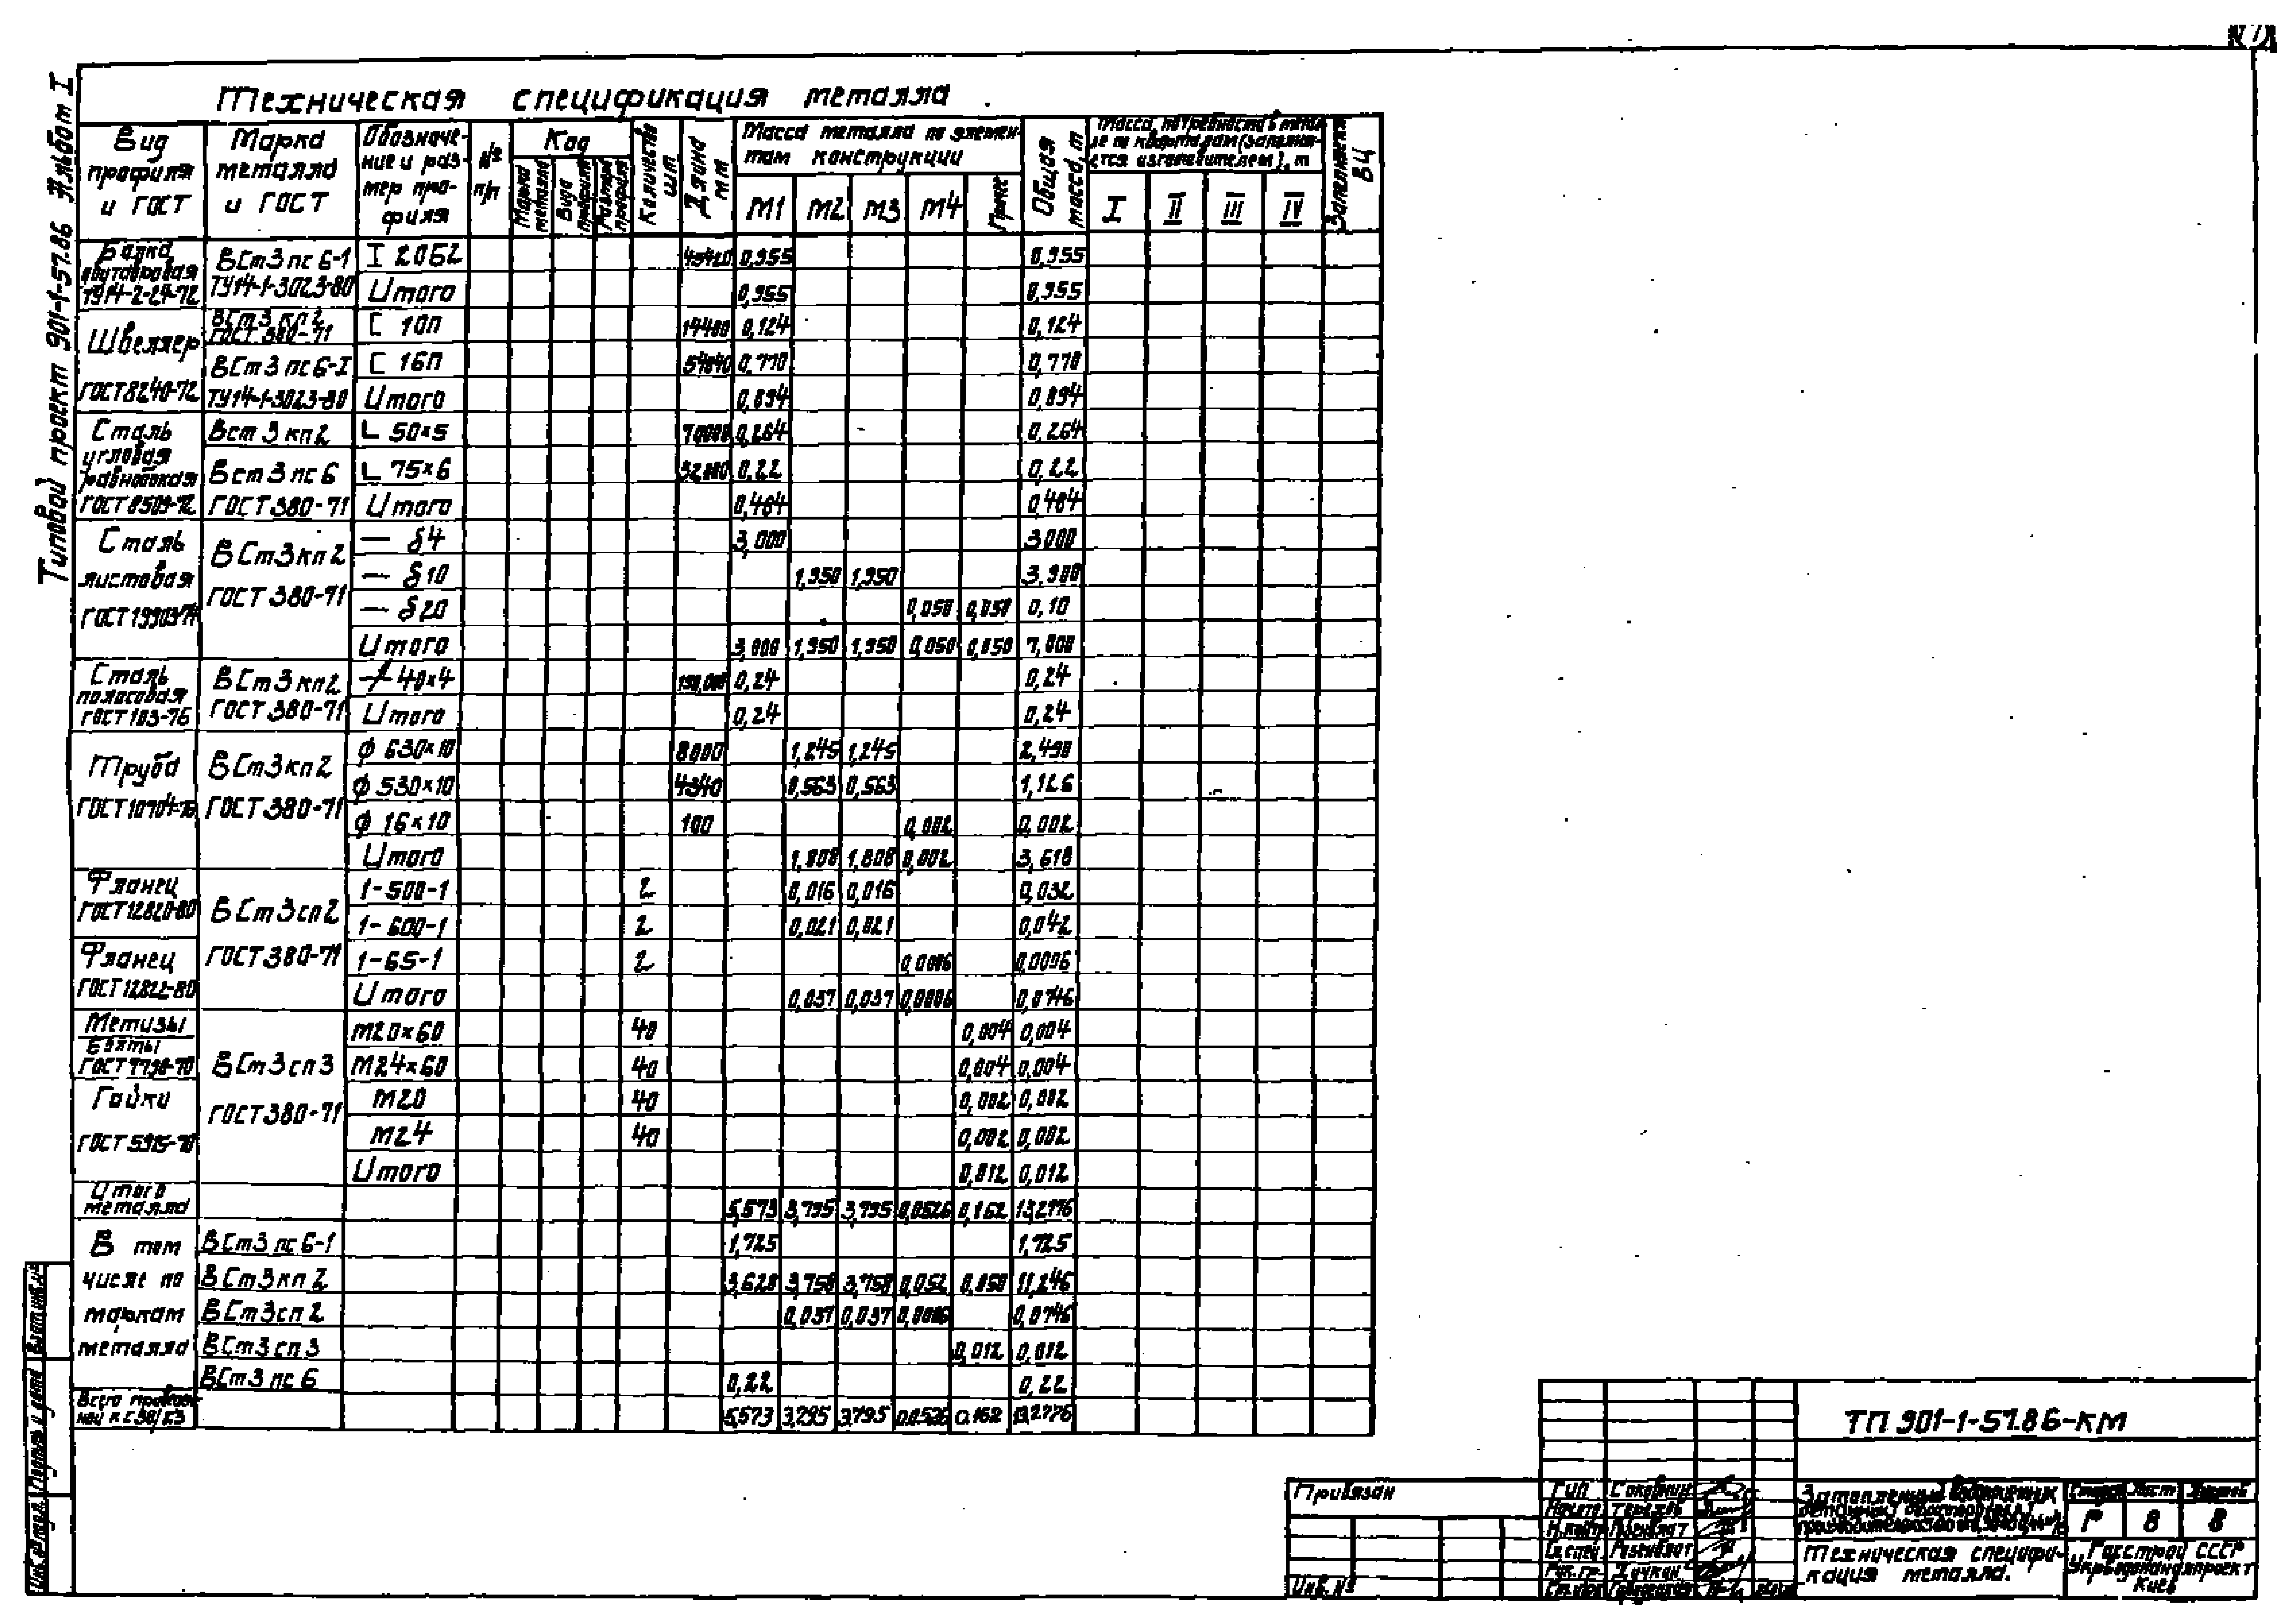 Типовой проект 901-1-57.86 Альбом I
Техническая спецификация металла
Вид профиля и ГОСТ
Марка металла и ГОСТ
Обозначение и размер профиля
№ п/п
Код
Марка металла
Вид профиля
Размер профиля
Количество шт
Длина мм
Масса металла по элементам конструкции
М1 М2 М3 М4
Общая масса, т
Масса потребности в металле по кварталам (заполняется изготовителем), т
I II III IV
Заполняется ВЦ
Балка двутавровая ТУ14-2-24-72
ВСт3пс6-1 I 20Б2 0,955 0,955
ТУ14-1-3023-80 Итого 0,955 0,955
Швеллер ГОСТ 8240-72
ВСт3кп2 ГОСТ 380-71 [ 10п 0,124 0,124
ВСт3пс6-I [ 16п 0,770 0,770
ТУ14-1-3023-80 Итого 0,894 0,894
Сталь угловая равнобокая ГОСТ 8509-72
Вст3кп2 L 50×5 70000 0,264 0,264
Вст3пс6 L 75×6 0,22 0,22
ГОСТ 380-71 Итого 0,484 0,484
Сталь листовая ГОСТ 19903-74
ВСт3кп2 ГОСТ 380-71
— δ4 3,000 3,000
— δ10 1,950 1,950 3,900
— δ20 0,050 0,050 0,10
Итого 3,000 1,950 1,950 0,050 0,050 7,000
Сталь полосовая ГОСТ 103-76
ВСт3кп2 40×4 0,24 0,24
ГОСТ 380-71 Итого 0,24 0,24
Труба ГОСТ 10704-76
ВСт3кп2 ГОСТ 380-71
ф 630×10 8000 1,245 1,245 2,490
ф 530×10 4340 0,563 0,563 1,126
ф 16×10 100 0,002 0,002
Итого 1,808 1,808 0,002 3,618
Фланец ГОСТ 12820-80
ВСт3сп2 ГОСТ 380-71
1-500-1 2 0,016 0,016 0,032
1-600-1 2 0,021 0,021 0,042
Фланец ГОСТ 12822-80
1-65-1 2 0,0006 0,0006
Итого 0,037 0,037 0,0006 0,0746
Метизы
Болты ГОСТ 7798-70
ВСт3сп3 ГОСТ 380-71
М20×60 40 0,004 0,004
М24×60 40 0,004 0,004
Гайки ГОСТ 5915-70
М20 40 0,002 0,002
М24 40 0,002 0,002
Итого 0,012 0,012
Итого металла 5,573 3,795 3,795 0,0526 0,162 13,2776
В том числе по маркам металла
ВСт3пс6-1 1,725 1,725
ВСт3кп2 3,628 3,758 3,758 0,052 0,050 11,246
ВСт3сп2 0,037 0,037 0,0006 0,0746
ВСт3сп3 0,012 0,012
ВСт3пс6 0,22 0,22
5,573 3,795 3,795 0,0526 0,162 13,2776
Взам. инв. №
Подпись и дата
Инв. № подл.
Привязан
Инв. №
ТП 901-1-57.86-КМ
ГИП
Гл. спец. Розенблат
Рук. гр.
Стадия Лист Листов
Р 8 8
Техническая спецификация металла.
Госстрой СССР
Укрводоканалпроект
Киев